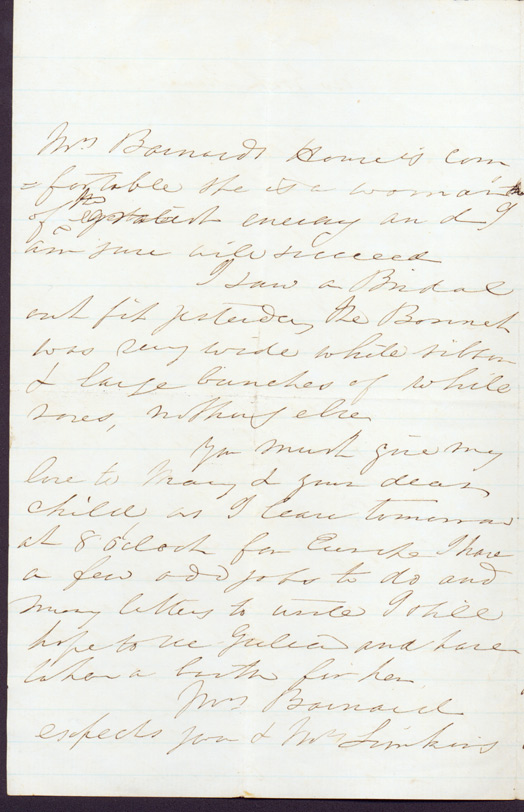 Mrs Barnards Home is com
=fortable she is a woman
of the greatest energy and I
am sure will succeed
I saw a Bridal
out fit yesterday the Bonnet
was very wide white ribbon
& large bunches of white
roses, nothing else
You must give my
love to Mary & your dear
child as I leave tomorrow
at 8 o'clock for Europe I have
a few odd jobs to do and
many letters to write I still
hope to see Julia and have
taken a berth for her
Mrs Barnard
expects you & Mrs Simkins